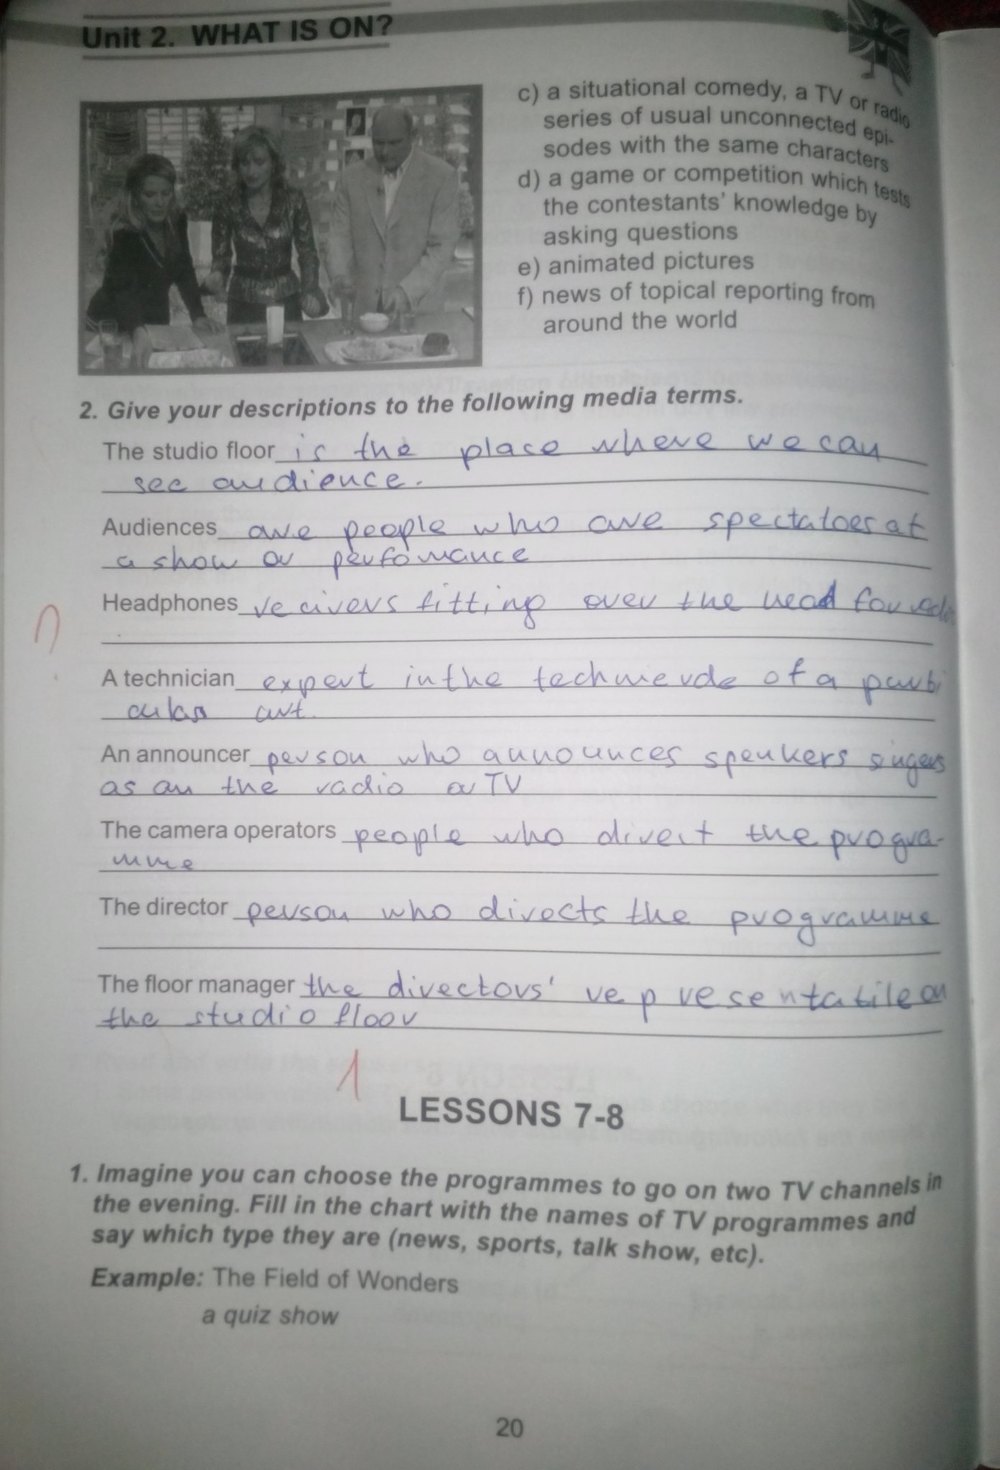 Unit 2. WHAT IS ON?
c) a situational comedy, a TV or radio
series of usual unconnected epi-
sodes with the same characters
d) a game or competition which tests
the contestants' knowledge by
asking questions
e) animated pictures
f) news of topical reporting from
around the world
2. Give your descriptions to the following media terms.
The studio floor is the place where we can
see audience.
Audiences are people who are spectatoes at
a show or perfomance
Headphones recivers fitting over the head for
A technician expert in the of a parti
cular art.
An announcer person who announces speakers singers
as on the radio or TV
The camera operators people who direct the progra-
mme
The director person who directs the programme
The floor manager the directors' representatile on
the studio floor
1
LESSONS 7-8
1. Imagine you can choose the programmes to go on two TV channels in
the evening. Fill in the chart with the names of TV programmes and
say which type they are (news, sports, talk show, etc).
Example: The Field of Wonders
a quiz show
20